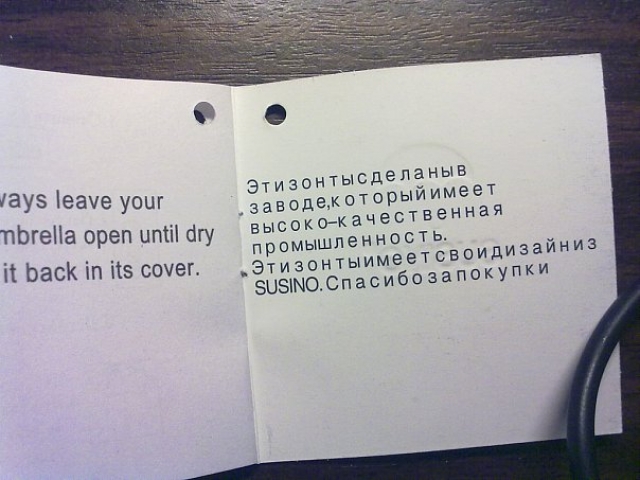 ways leave your
mbrella open until dry
it back in its cover.
Этизонтысделаныв
заводе,которыйимеет
высоко-качественная
промышленность.
Этизонтыимеетсвоидизайниз
SUSINO.Спасибозапокупки